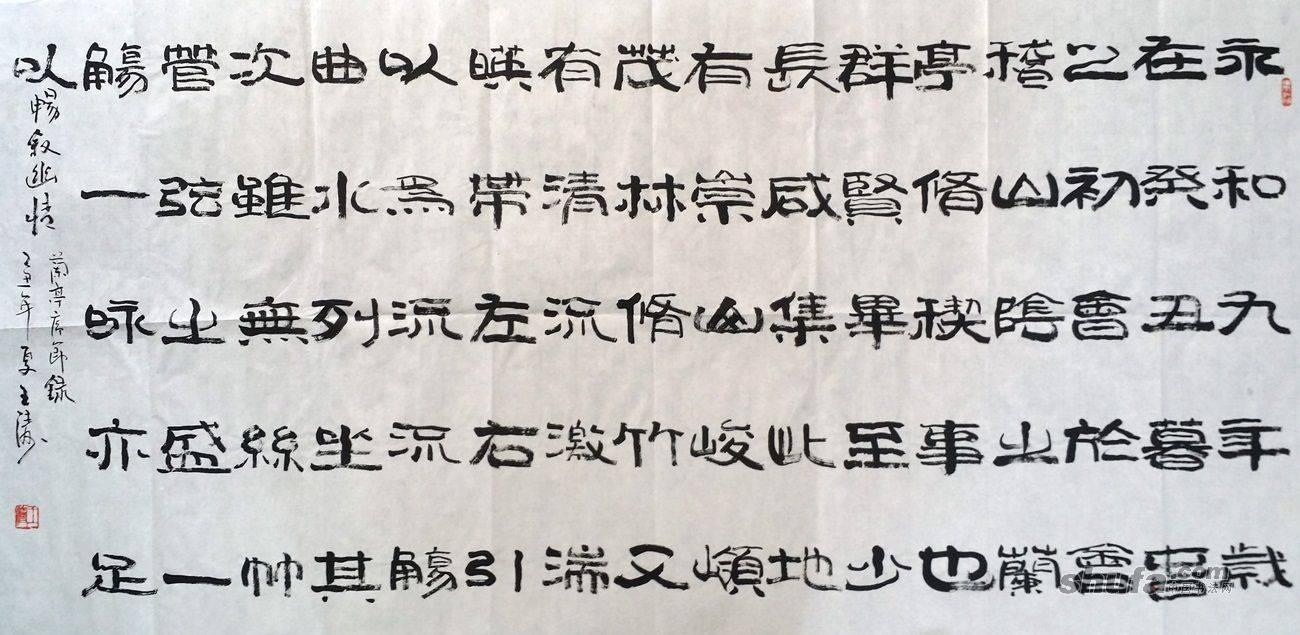 永和九年歲
在癸丑暮春
之初會於會
稽山陰之蘭
亭脩稧事也
群賢畢至少
長咸集此地
有崇山峻嶺
茂林脩竹又
有清流激湍
暎帶左右引
以為流流觴
曲水列坐其
次雖無絲竹
管弦之盛一
觴一詠亦足
以暢敘幽情
蘭亭序節錄
丑年夏王
shufa.com
中国书法网